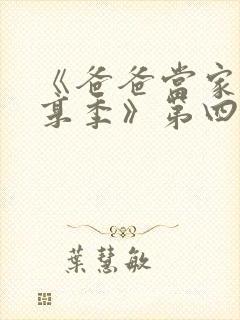 《爸爸當家
某季》第四
葉慧敏